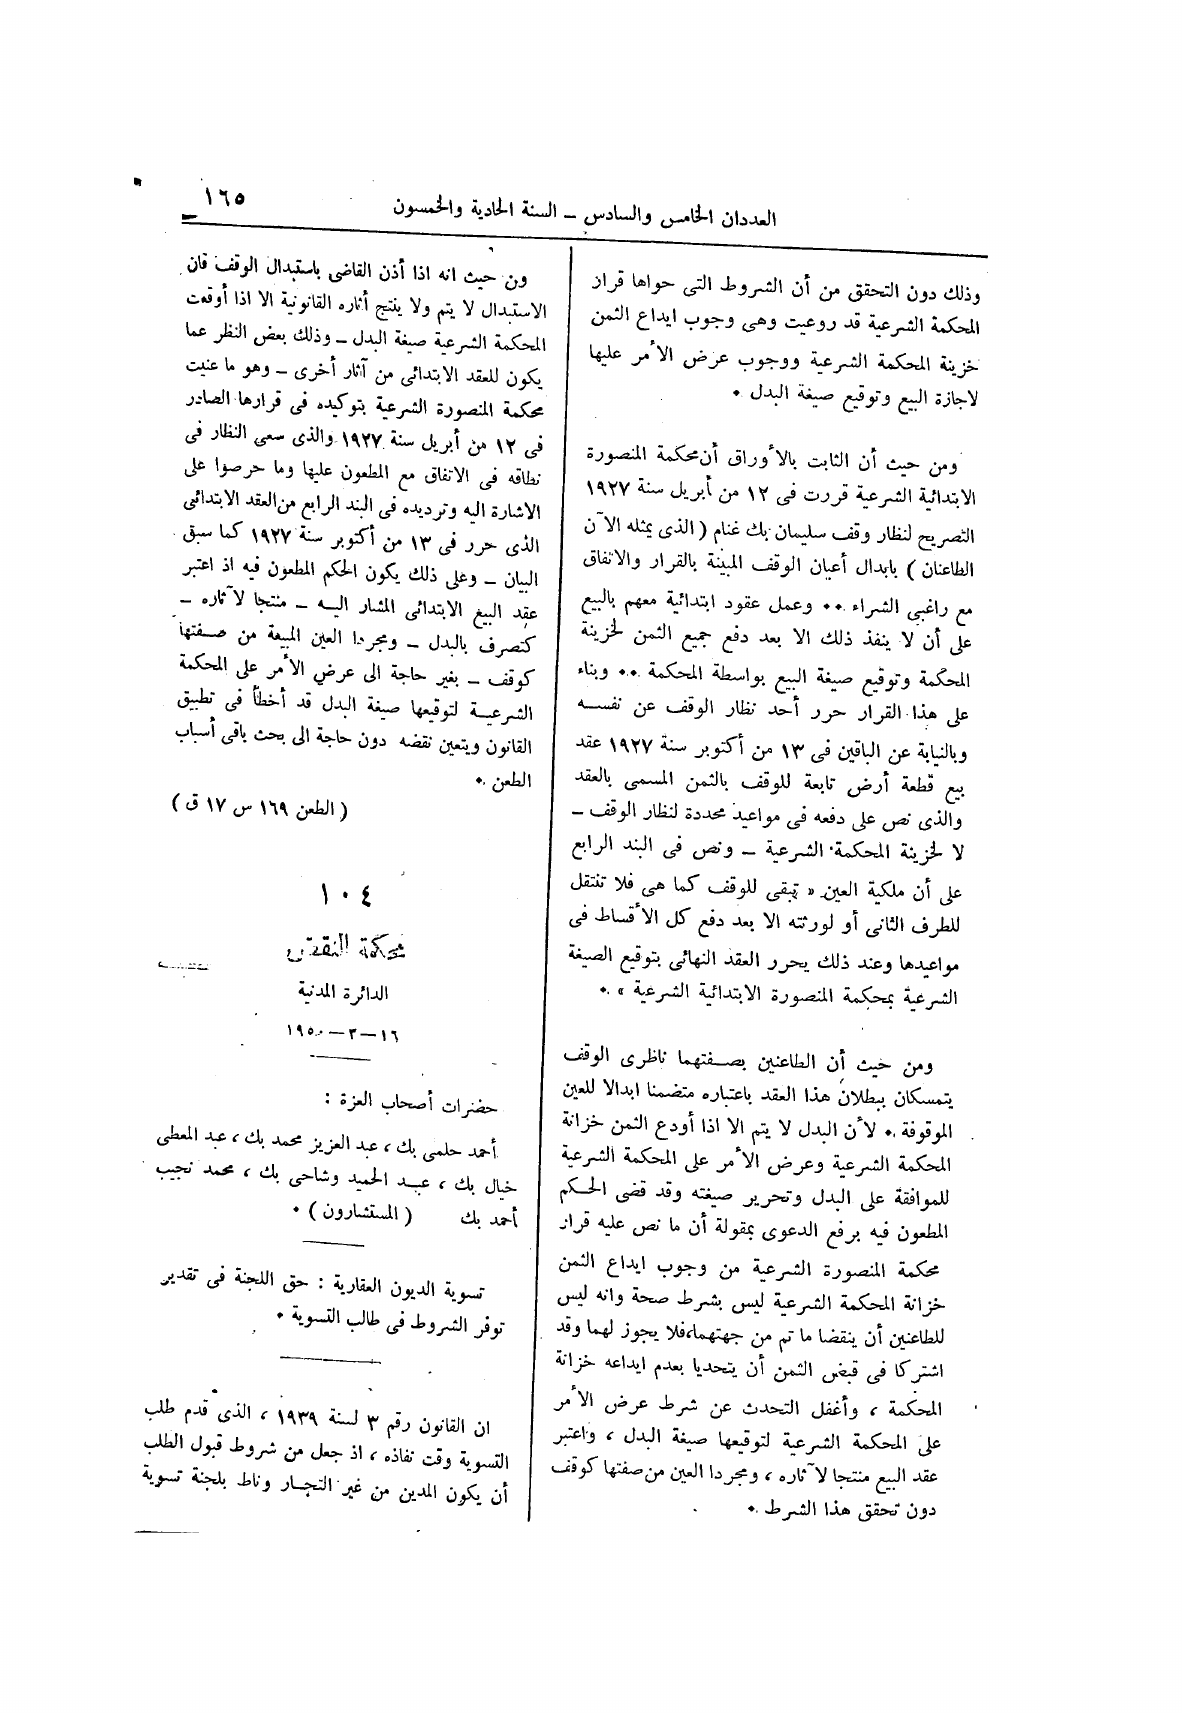 العددان الخامس والسادس – السنة الحادية والخمسون
١٦٥
وذلك دون التحقق من أن الشروط التى حواها قرار
المحكمة الشرعية قد روعيت وهى وجوب ايداع الثمن
خزينة المحكمة الشرعية ووجوب عرض الأمر عليها
لاجازة البيع وتوقيع صيغة البدل .
ومن حيث أن الثابت بالأوراق أن محكمة المنصورة
الابتدائية الشرعية قررت فى ١٢ من أبريل سنة ١٩٢٧
التصريح لنظار وقف سليمان بك غنام ( الذى يمثله الآن
الطاعنان ) بابدال أعيان الوقف المبينة بالقرار والاتفاق
مع راغبي الشراء .. وعمل عقود ابتدائية معهم بالبيع
على أن لا ينفذ ذلك الا بعد دفع جميع الثمن لخزينة
المحكمة وتوقيع صيغة البيع بواسطة المحكمة .. وبناء
على هذا القرار حرر أحد نظار الوقف عن نفسه
وبالنيابة عن الباقين فى ١٣ من أكتوبر سنة ١٩٢٧ عقد
بيع قطعة أرض تابعة للوقف بالثمن المسمى بالعقد
والذى نص على دفعه فى مواعيد محددة لنظار الوقف –
لا لخزينة المحكمة الشرعية – ونص فى البند الرابع
على أن ملكية العين « تبقى للوقف كما هى فلا تنتقل
للطرف الثانى أو لورثته الا بعد دفع كل الأقساط فى
مواعيدها وعند ذلك يحرر العقد النهائى بتوقيع الصيغة
الشرعية بمحكمة المنصورة الابتدائية الشرعية » .
ومن حيث أن الطاعنين بصفتهما ناظرى الوقف
يتمسكان ببطلان هذا العقد باعتباره متضمنا ابدالا للعين
الموقوفة . لأن البدل لا يتم الا اذا أودع الثمن خزانة
المحكمة الشرعية وعرض الأمر على المحكمة الشرعية
للموافقة على البدل وتحرير صيغته وقد قضى الحكم
المطعون فيه برفع الدعوى بمقولة أن ما نص عليه قرار
محكمة المنصورة الشرعية من وجوب ايداع الثمن
خزانة المحكمة الشرعية ليس بشرط صحة وانه ليس
للطاعنين أن ينقضا ما تم من جهتهما،فلا يجوز لهما وقد
اشتركا فى قبض الثمن أن يتحديا بعدم ايداعه خزانة
المحكمة ، وأغفل التحدث عن شرط عرض الأمر
على المحكمة الشرعية لتوقيعها صيغة البدل ، واعتبر
عقد البيع منتجا لآثاره ، ومجردا العين من صفتها كوقف
دون تحقق هذا الشرط .
ومن حيث انه اذا أذن القاضى باستبدال الوقف فان
الاستبدال لا يتم ولا ينتج أثاره القانونية الا اذا أوقعت
المحكمة الشرعية صيغة البدل – وذلك بعض النظر عما
يكون للعقد الابتدائى من آثار أخرى – وهو ما عنيت
محكمة المنصورة الشرعية بتوكيده فى قرارها الصادر
فى ١٢ من أبريل سنة ١٩٢٧ والذى سعى النظار فى
نطاقه فى الاتفاق مع المطعون عليها وما حرصوا على
الاشارة اليه وترديده فى البند الرابع من العقد الابتدائى
الذى حرر فى ١٣ من أكتوبر سنة ١٩٢٧ كما سبق
البيان – وعلى ذلك يكون الحكم المطعون فيه اذ اعتبر
عقد البيع الابتدائى المشار اليه – منتجا لآثاره –
كتصرف بالبدل – ومجردا العين المبيعة من صفتها
كوقف – بغير حاجة الى عرض الأمر على المحكمة
الشرعية لتوقيعها صيغة البدل قد أخطأ فى تطبيق
القانون ويتعين نقضه دون حاجة الى بحث باقى أسباب
الطعن .
( الطعن ١٦٩ س ١٧ ق )
١٠٤
محكمة النقض
الدائرة المدنية
١٦–٣–١٩٥٠
حضرات أصحاب العزة :
أحمد حلمى بك ، عبد العزيز محمد بك ، عبد المعطى
خيال بك ، عبد الحميد وشاحى بك ، محمد نجيب
أحمد بك ( المستشارون ) .
تسوية الديون العقارية : حق اللجنة فى تقدير
توفر الشروط فى طالب التسوية .
ان القانون رقم ٣ لسنة ١٩٣٩ ، الذى قدم طلب
التسوية وقت نفاذه ، اذ جعل من شروط قبول الطلب
أن يكون المدين من غير التجار وناط بلجنة تسوية